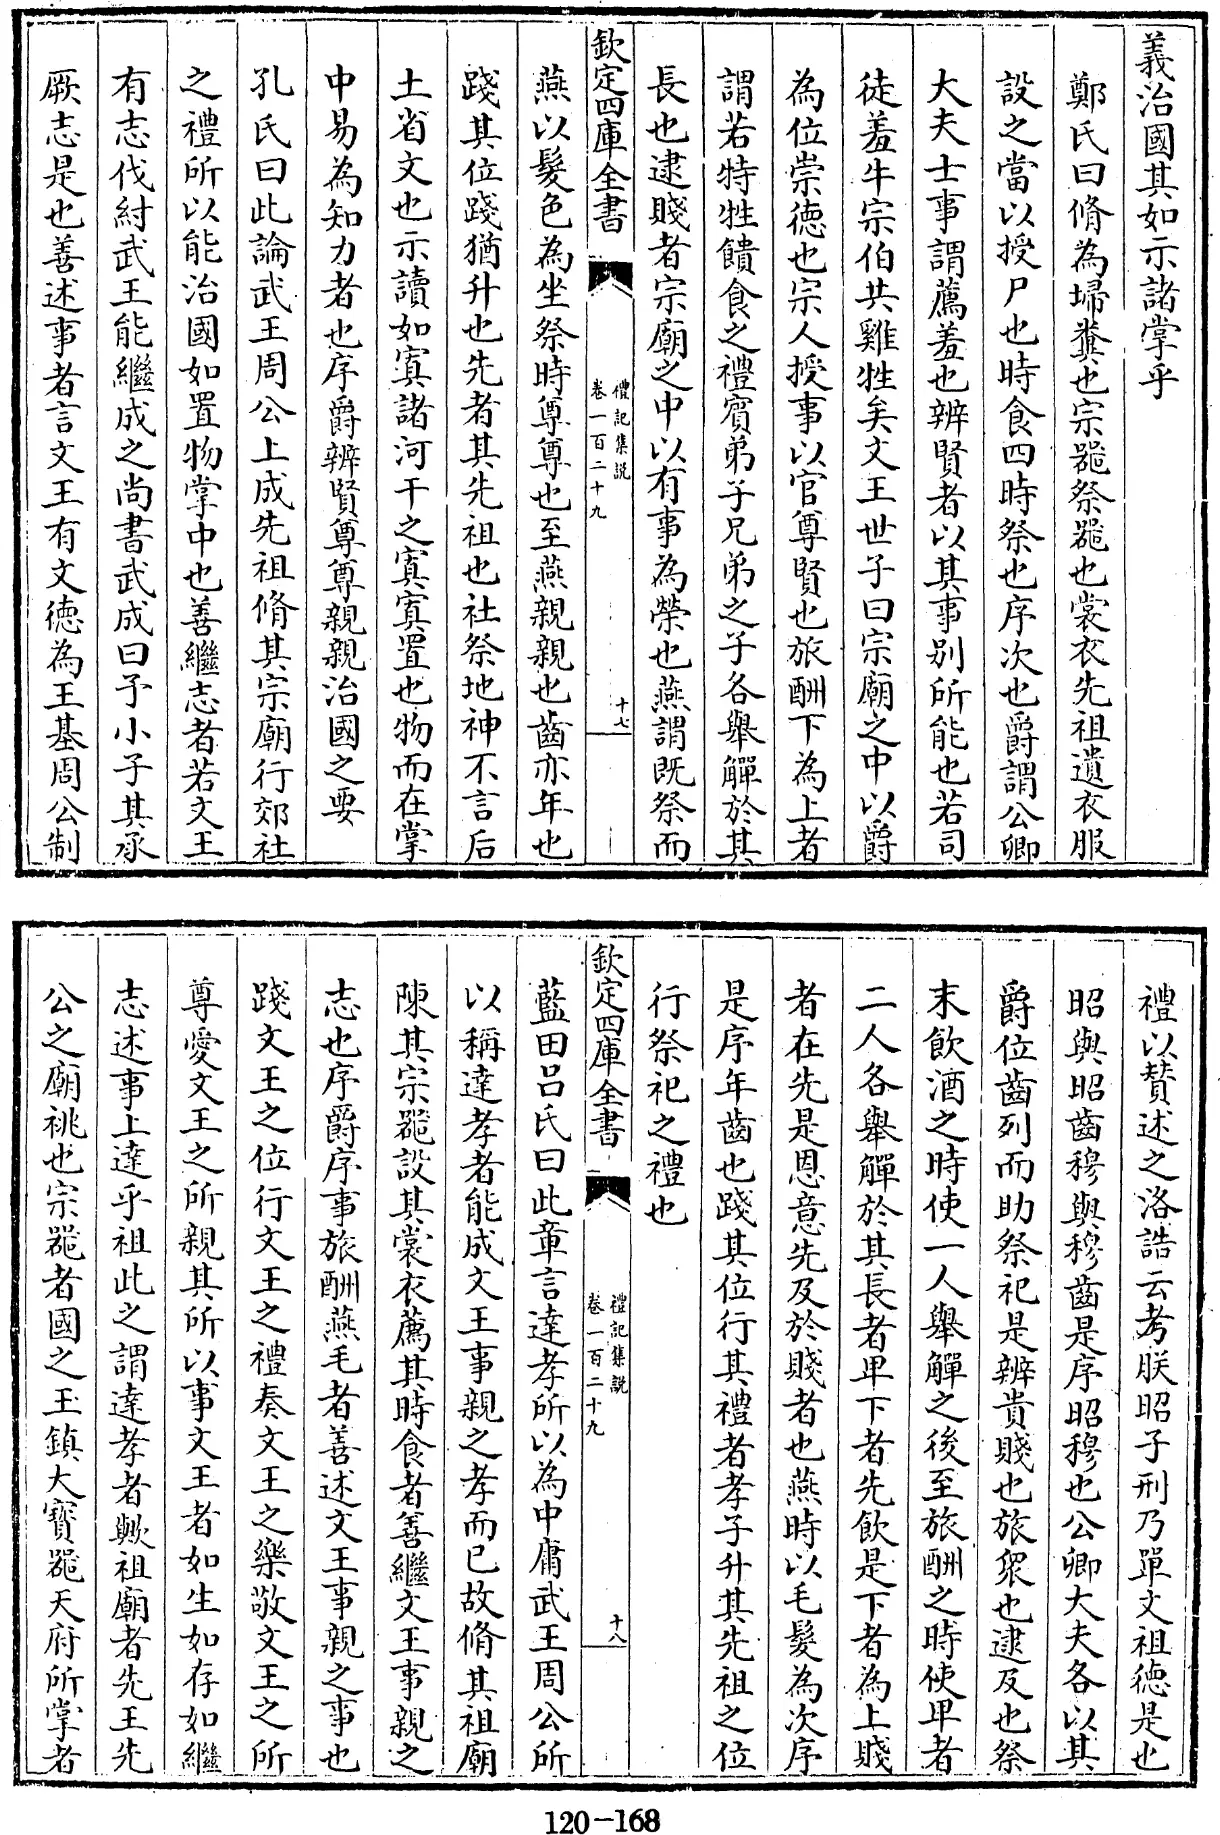 義治國其如示諸掌乎
鄭氏曰脩為埽糞也宗器祭器也裳衣先祖遺衣服
設之當以授尸也時食四時祭也序次也爵謂公卿
大夫士事謂薦羞也辨賢者以其事别所能也若司
徒羞牛宗伯共雞牲矣文王世子曰宗廟之中以爵
為位崇德也宗人授事以官尊賢也旅酬下為上者
謂若特牲饋食之禮賓弟子兄弟之子各舉觶於其
長也逮賤者宗廟之中以有事為榮也燕謂既祭而
欽定四庫全書
禮記集説
卷一百二十九
十七
燕以髮色為坐祭時尊尊也至燕親親也齒亦年也
踐其位踐猶升也先者其先祖也社祭地神不言后
土省文也示讀如寘諸河干之寘寘置也物而在掌
中易為知力者也序爵辨賢尊尊親親治國之要
孔氏曰此論武王周公上成先祖脩其宗廟行郊社
之禮所以能治國如置物掌中也善繼志者若文王
有志伐紂武王能繼成之尚書武成曰予小子其承
厥志是也善述事者言文王有文德為王基周公制
禮以贊述之洛誥云考朕昭子刑乃單文祖德是也
昭與昭齒穆與穆齒是序昭穆也公卿大夫各以其
爵位齒列而助祭祀是辨貴賤也旅衆也逮及也祭
末飲酒之時使一人舉觶之後至旅酬之時使卑者
二人各舉觶於其長者卑下者先飲是下者為上賤
者在先是恩意先及於賤者也燕時以毛髮為次序
是序年齒也踐其位行其禮者孝子升其先祖之位
行祭祀之禮也
欽定四庫全書
禮記集説
卷一百二十九
十八
藍田吕氏曰此章言達孝所以為中庸武王周公所
以稱達孝者能成文王事親之孝而已故脩其祖廟
陳其宗器設其裳衣薦其時食者善繼文王事親之
志也序爵序事旅酬燕毛者善述文王事親之事也
踐文王之位行文王之禮奏文王之樂敬文王之所
尊愛文王之所親其所以事文王者如生如存如繼
志述事上達乎祖此之謂達孝者歟祖廟者先王先
公之廟祧也宗器者國之玉鎮大寶器天府所掌者
120-168